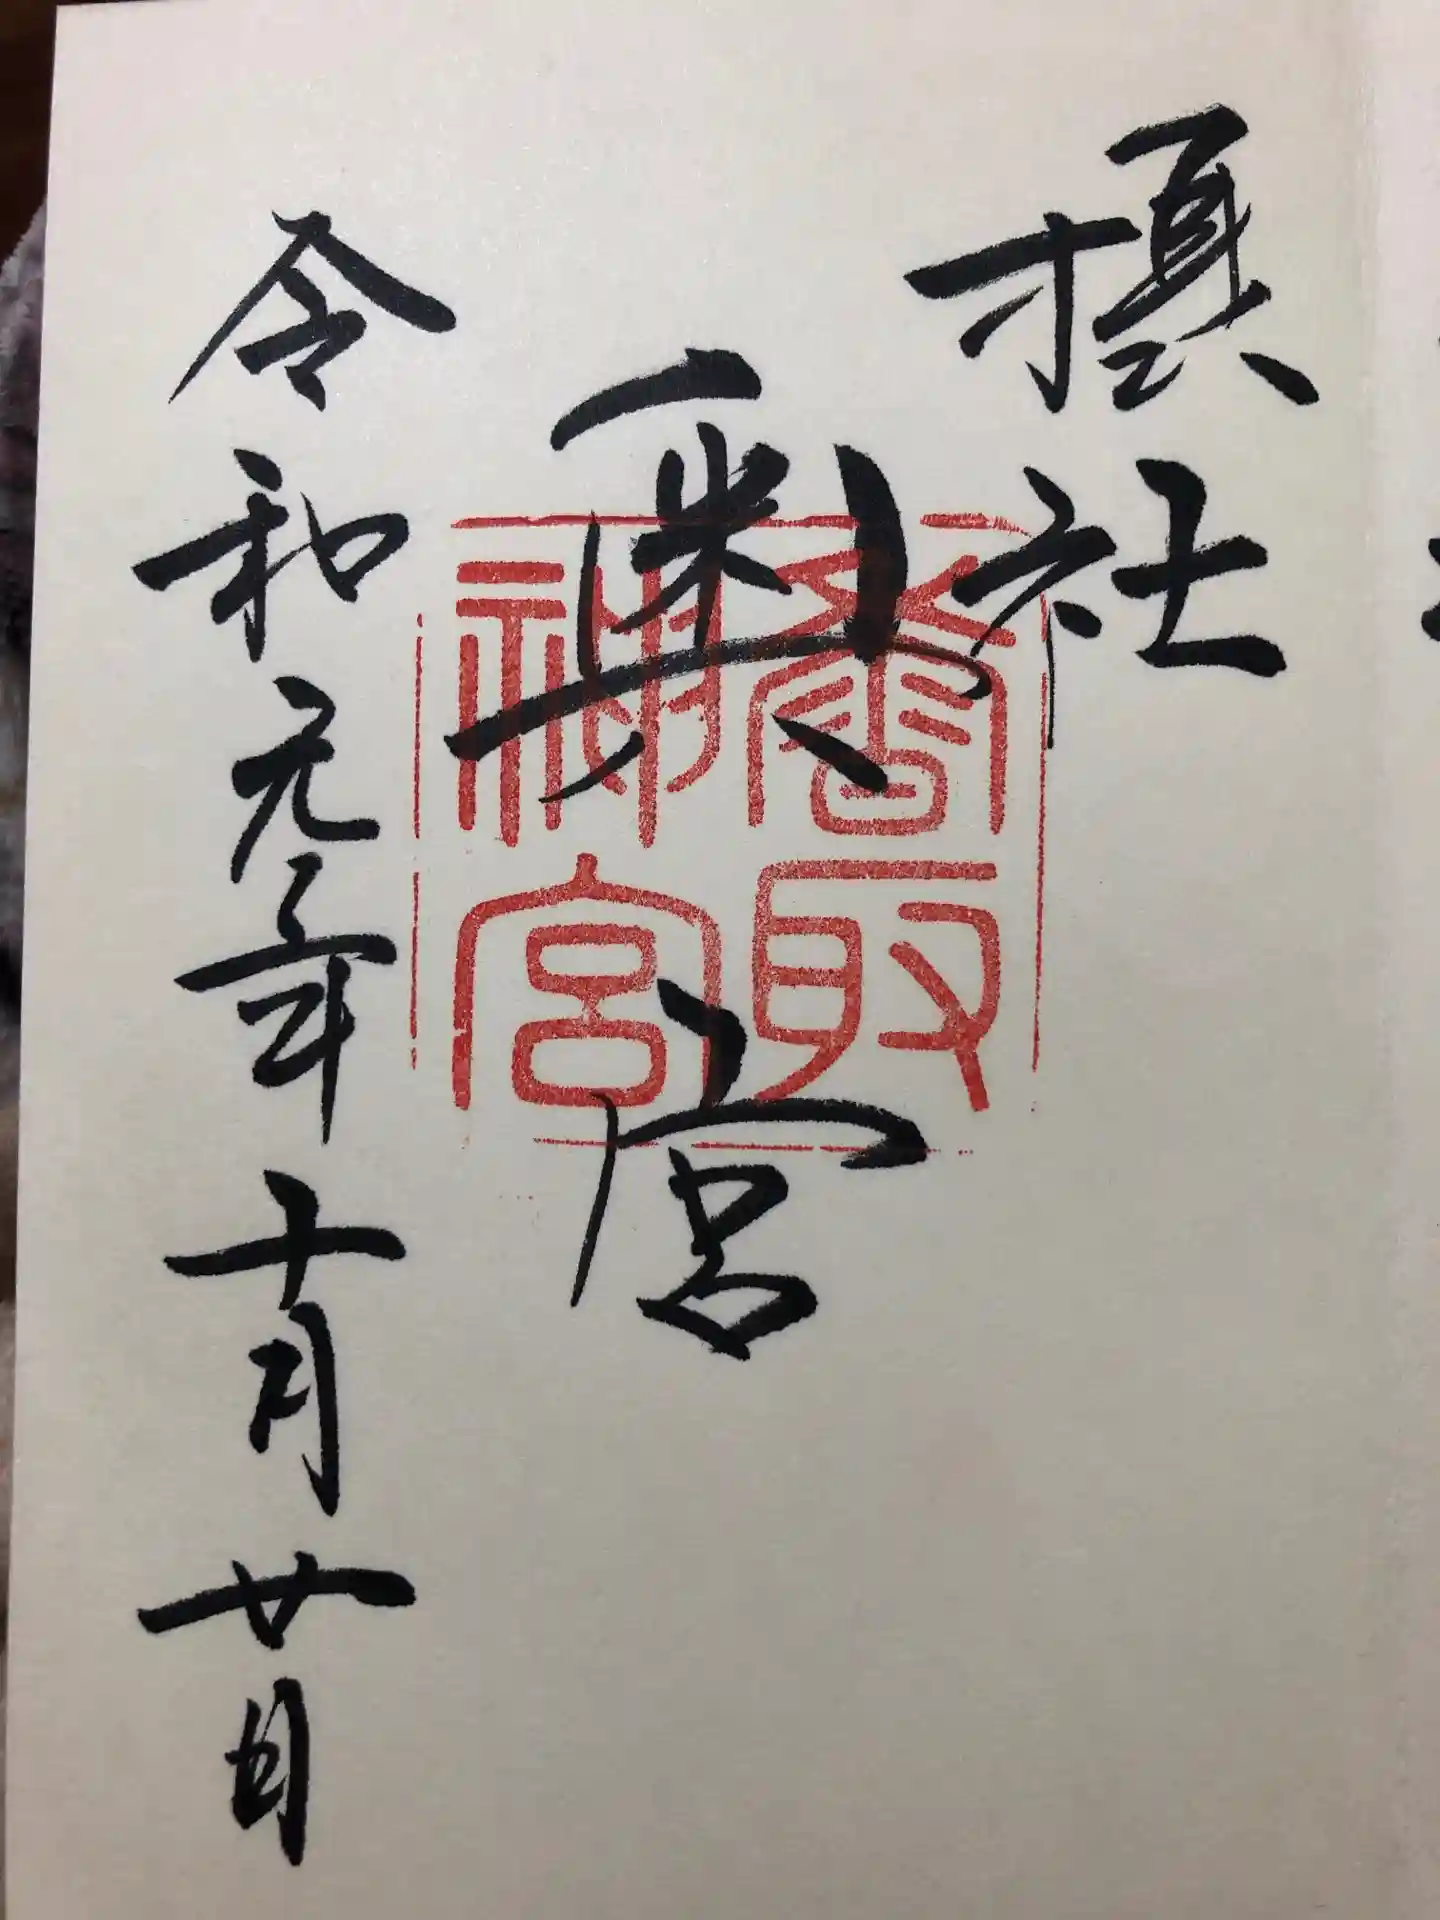 摂社
奥宮
香取
神宮
令和元年十月廿日